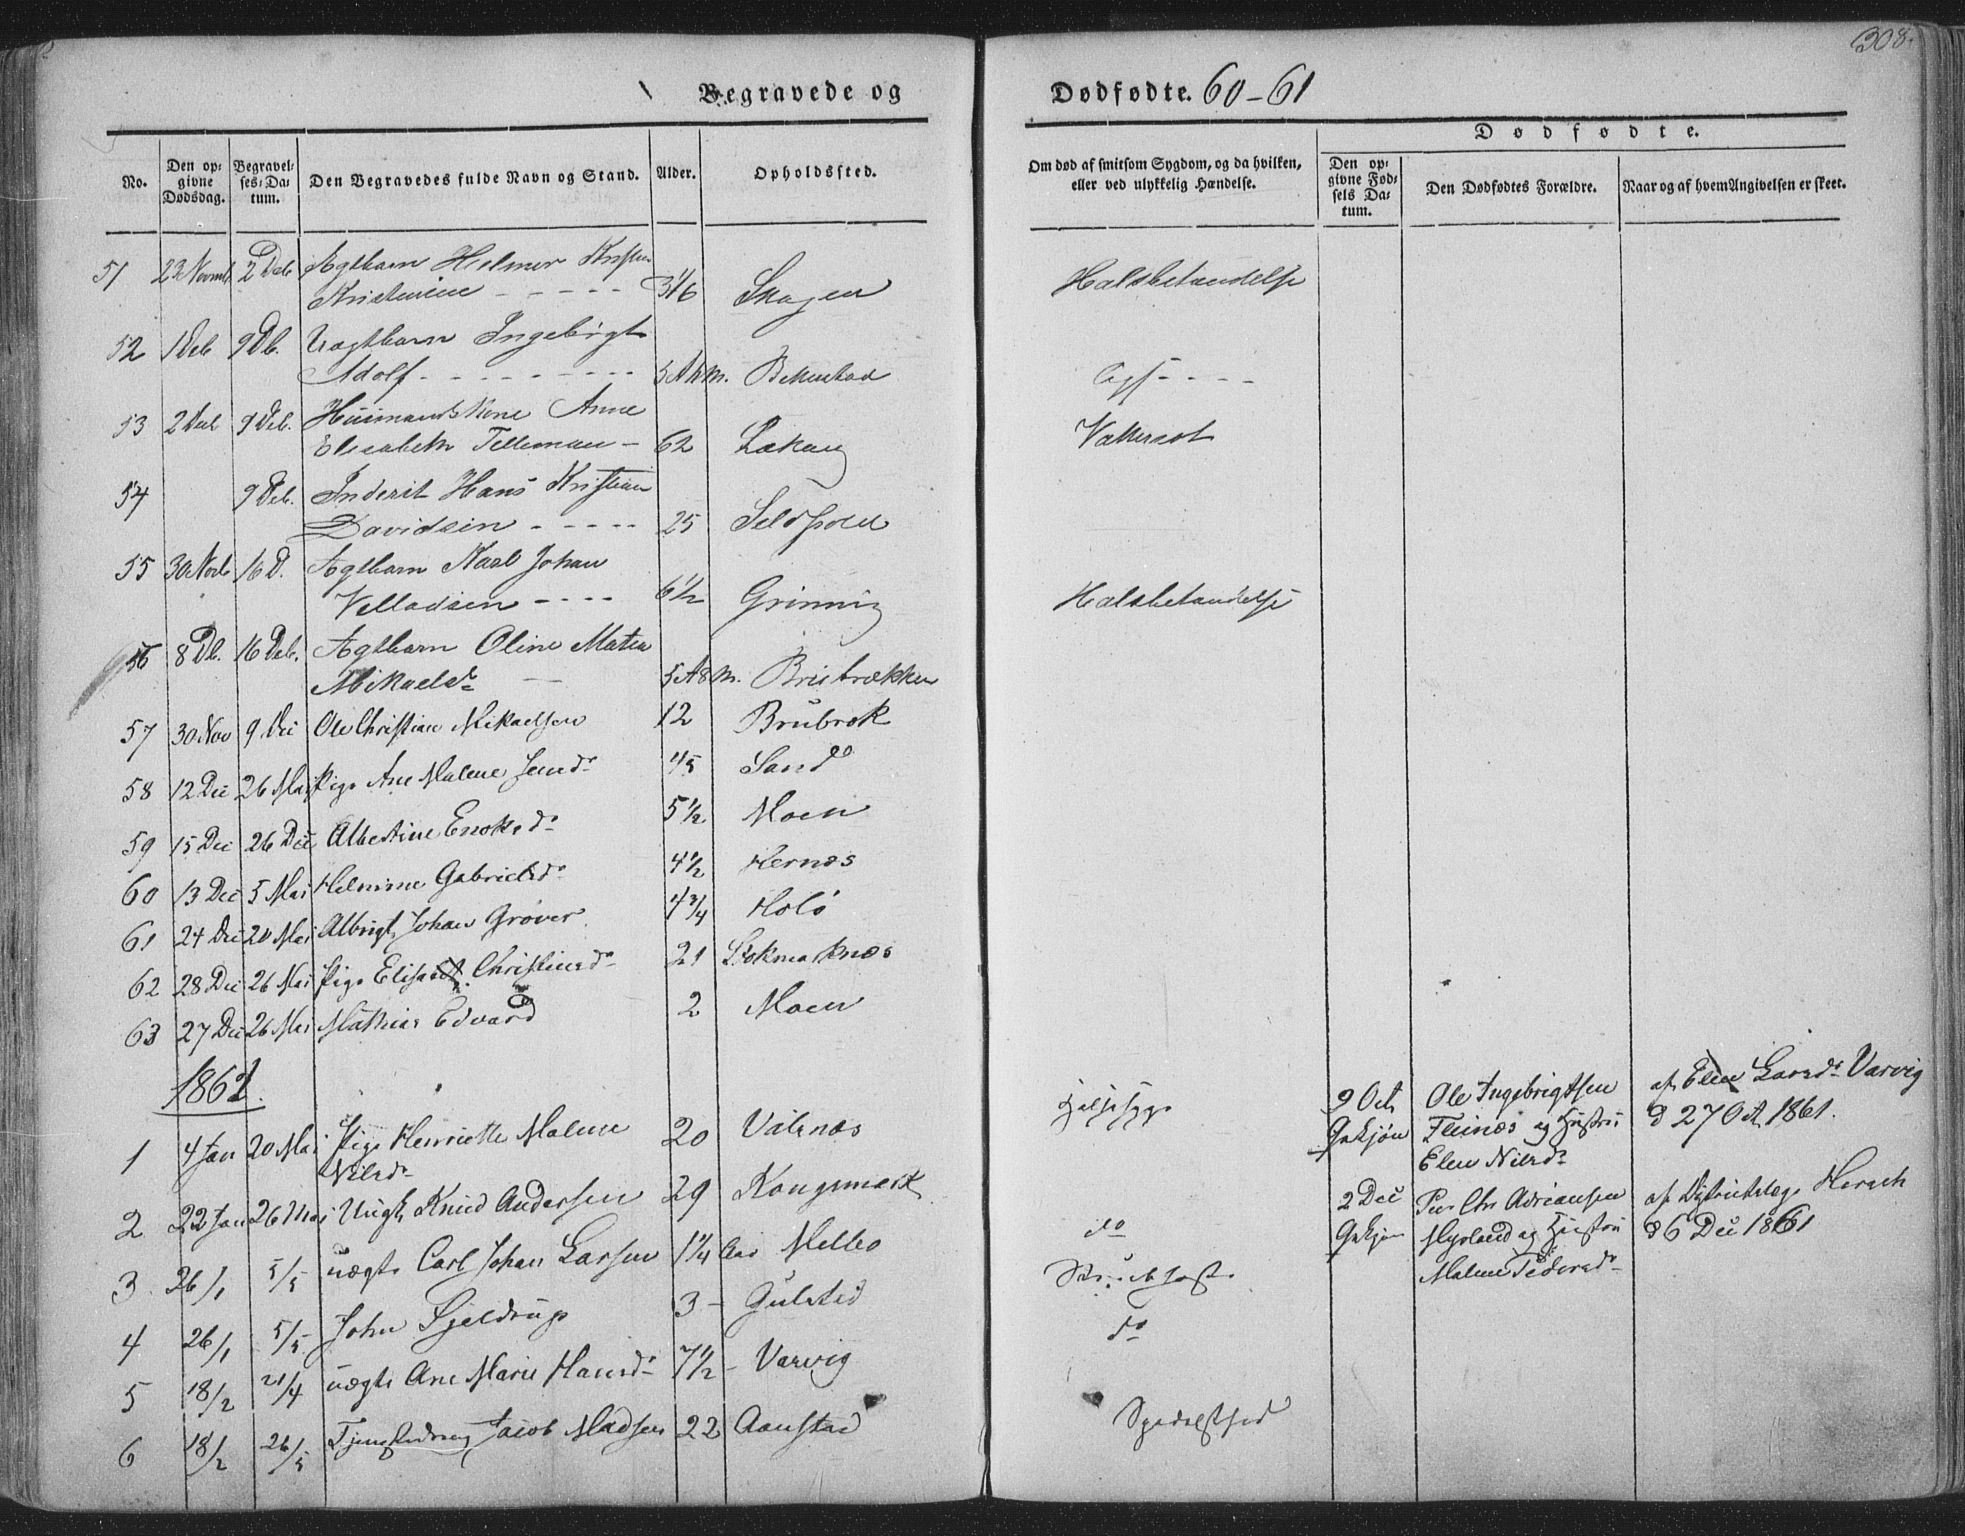 308.
Begravede og Dødfødte. 60-61
Dødfødte.
No.
Den opgivne Dødsdag.
Begravelses-Datum.
Den Begravedes fulde Navn og Stand.
Alder.
Opholdssted.
Om død af smitsom Sygdom, og da hvilken, eller ved ulykkelig Hændelse.
Den opgivne Fødsels Datum.
Den Dødfødtes Forældre.
Naar og af hvem Angivelsen er skeet.
51 23 Novmb 2 Deb Ægtbarn Helmer
Kristenine - - - - - Skagen Halsbetændelse
52 1 Deb 9 Db. Uægtbarn Ingebrigt
Adolf - - - - - - - 5 A
53 2 Deb 9 Deb. Huusmands Kone Anne
Elisabeth Tellemann - 62 Vattersot
54 9 Deb. Inderst Hans Kristian
Davidsen - - - - 25
55 30 Novb 16 D. Ægtbarn Karl Johan
Velladsen - - - - 6 1/2 Grinnig Halsbetændelse
56 8 Db. 16 Deb. Ægtbarn Oline Matea
Mikaelsd. 5 A 8 M. Breitrækken
57 30 Nov 9 Dec Ole Christian Mikaelsen 12 Brubrok
58 12 Dec 26 Mai Pige Ane Malene Jensd. 45 Sand
59 15 Dec 26 Dec Albertine Enoksd. 5 1/2 Moen
60 13 Dec 5 Mai Helmine Gabrielsd. 4 1/2 Hernæs
61 24 Dec 20 Mai Albrigt Johan Grøver 4 3/4 Holö
62 28 Dec 26 Mai Pige Elisabet Christiansd. 21 Stokmarknæs
63 27 Dec 26 Mai Mathias Edvard 2 Moen
1862.
1 4 Jan 20 Mai Pige Henriette Malene 20 Valnæs
Nilsd.
2 22 Jan 26 Mai Ungk. Knud Andersen 29 Kongsmark do
3 26/1 5/5 uægte Carl Johan Larsen 1 1/4 Aar Melbo
4 26/1 5/5 John Fjeldrup 3 - Gulstad do
5 18/2 21/4 uægte Ane Marie Hansd. 7 1/2 - Varvig
6 18/2 26/5 Tjenestedreng Jacob Madsen 22 Aanstad Spedalskhed
9 Oct Ole Ingebrigtsen af Elen Larsd. Varvig
Qvkjøn Fleinæs og Hustru d 27 Oct 1861.
Elen Nilsd.
2 Dec Peer Chr Adriansen af Districtslæge Hersch
Qvkjøn Myrland og Hustru d 6 Dec 1861
Malene Pedersd.